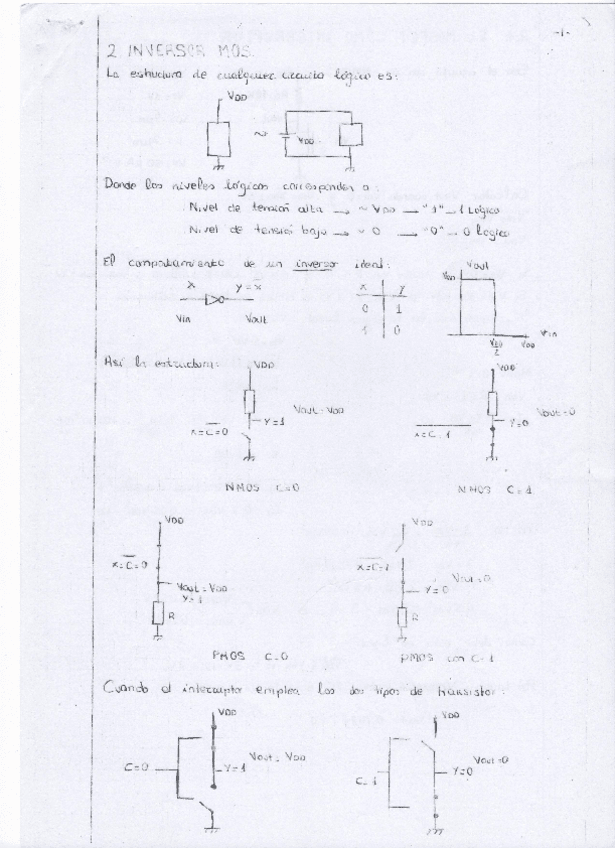 -1-
2 INVERSOR MOS.
La estructura de cualquier circuito lógico es:
VDD
~ VDD
Donde los niveles lógicos corresponden a:
Nivel de tensión alta → ~ VDD → "1" → 1 Lógico
Nivel de tensión bajo → ~ 0 → "0" → 0 Lógico
El comportamiento de un inversor ideal:
x y = x̅ x y Vout
VDD
0 1
Vin Vout 1 0
Vin
VDD/2 VDD
Así la estructura: VDD VDD
Vout = VDD Vout = 0
Y=1 Y=0
x = C̅ = 0 x = C̅ = 1
NMOS C=0 NMOS C=1
VDD VDD
x = C̅ = 0 x = C̅ = 1
Vout = VDD Vout = 0
Y=1 Y=0
R R
PMOS C=0 PMOS con C=1
Cuando el interruptor emplea los dos tipos de transistor:
VDD VDD
Vout = VDD Vout = 0
C=0 Y=1 C=1 Y=0